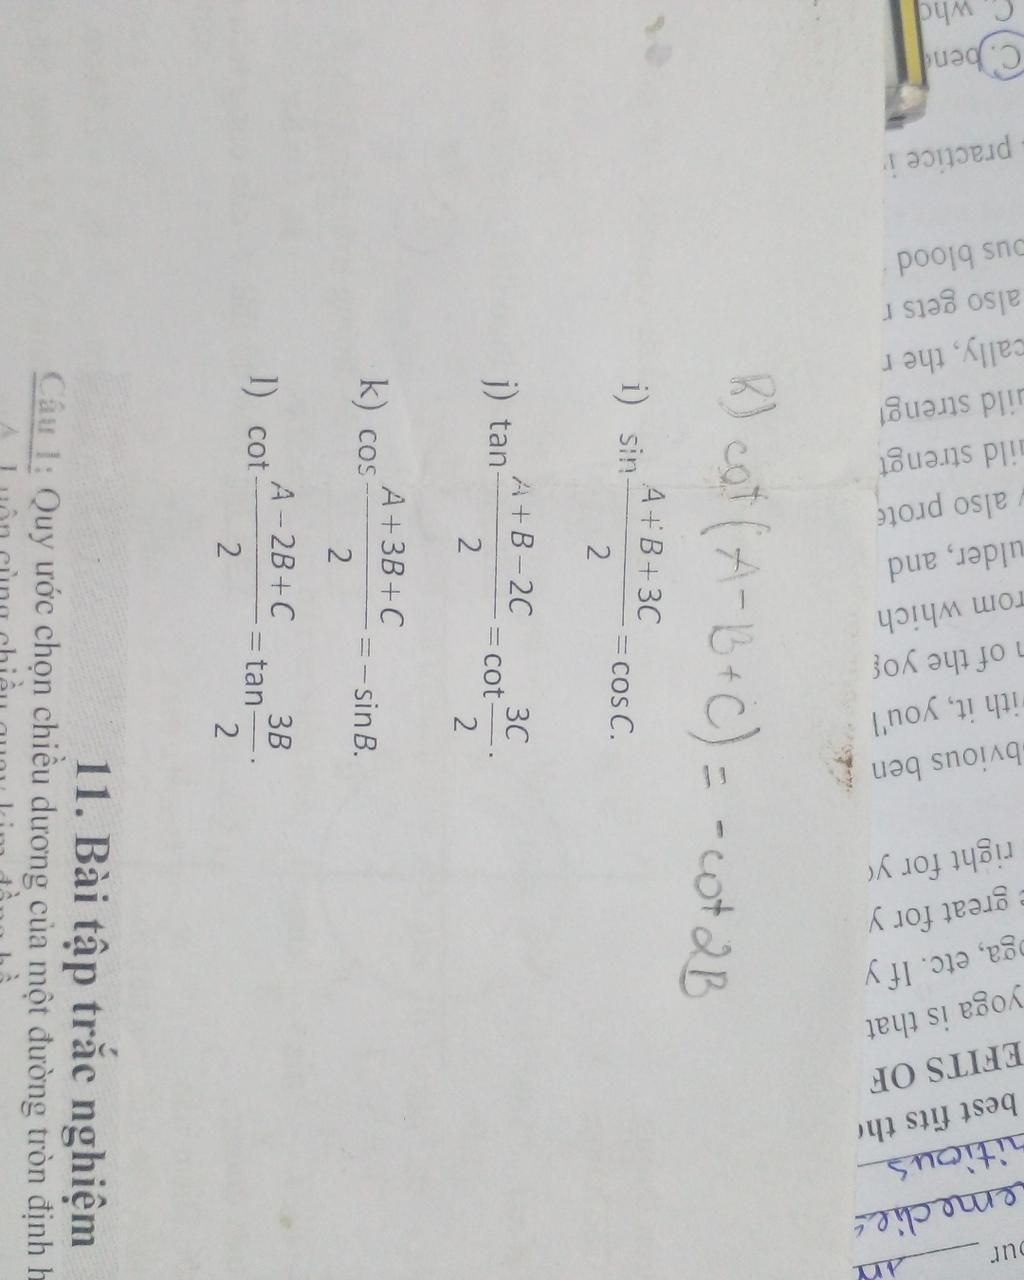 R) cot (A - B + C) = - cot 2B
i) sin (A + B + 3C)/2 = cos C.
j) tan (A + B - 2C)/2 = cot 3C/2.
k) cos (A + 3B + C)/2 = - sin B.
l) cot (A - 2B + C)/2 = tan 3B/2.
11. Bài tập trắc nghiệm
Câu 1: Quy ước chọn chiều dương của một đường tròn định
C. who
C. ben
practice
ous blood
also gets
cally, the
uild
uild
also
ulder, and
rom which
of the
ith it, you'l
bvious ben
right for
great for y
oga, etc. If y
yoga is that
EFITS OF
best fits the
our